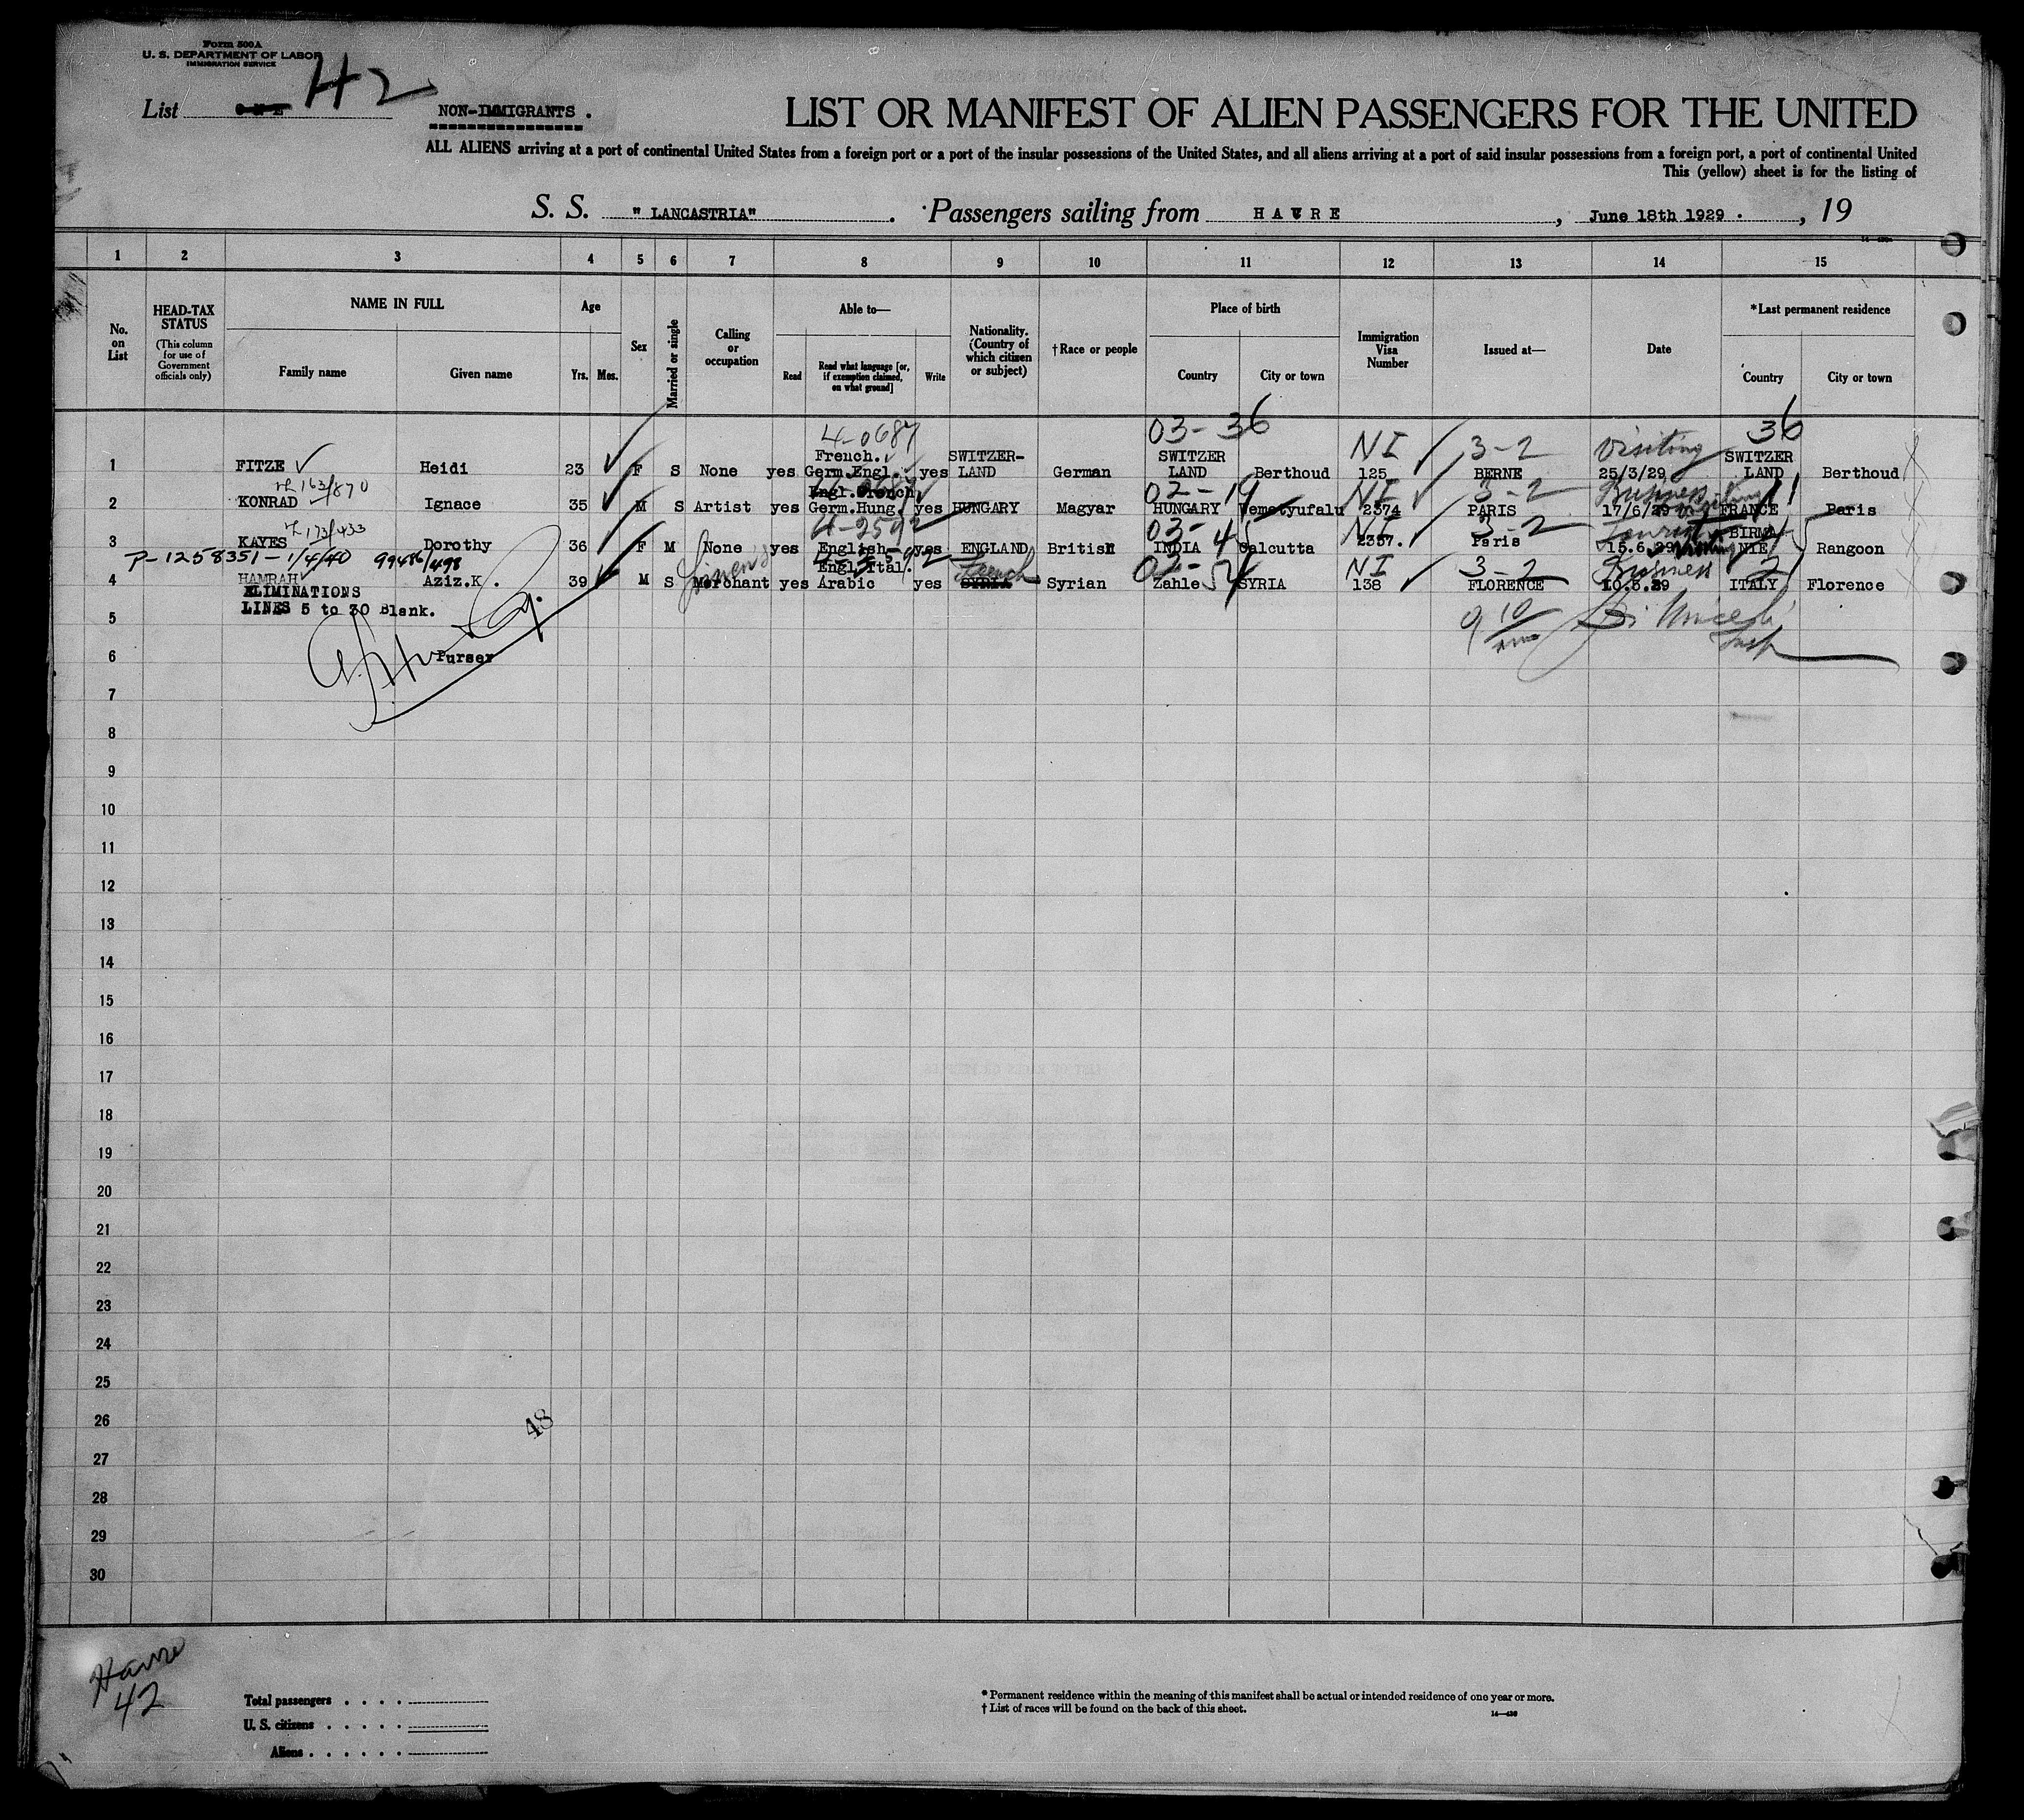 Form 500A
U. S. DEPARTMENT OF LABOR
IMMIGRATION SERVICE
List 42
NON-IMMIGRANTS .
LIST OR MANIFEST OF ALIEN PASSENGERS FOR THE UNITED
ALL ALIENS arriving at a port of continental United States from a foreign port or a port of the insular possessions of the United States, and all aliens arriving at a port of said insular possessions from a foreign port, a port of continental United
This (yellow) sheet is for the listing of
S. S. "LANCASTRIA" . Passengers sailing from HAVRE , June 18th 1929 . , 19
1 2 3 4 5 6 7 8 9 10 11 12 13 14 15
No. on List
HEAD-TAX STATUS
(This column for use of Government officials only)
NAME IN FULL
Family name Given name
Age
Yrs. Mos.
Sex
Married or single
Calling or occupation
Able to—
Read Read what language [or, if exemption claimed, on what ground] Write
Nationality. (Country of which citizen or subject)
†Race or people
Place of birth
Country City or town
Immigration Visa Number
Issued at—
Date
*Last permanent residence
Country City or town
4-0687 03-36 NI 3-2 Visiting 36
French. SWITZER- SWITZER SWITZER
1 FITZE Heidi 23 F S None yes Germ.Engl. yes LAND German LAND Berthoud 125 BERNE 25/3/29 LAND Berthoud
163/870 02-19 NI 3-2 Business 11
Engl.French
2 KONRAD Ignace 35 M S Artist yes Germ.Hung. yes HUNGARY Magyar HUNGARY Nemetyufalu 2374 PARIS 17/6/29 FRANCE Paris
173/433 4-2592 03-45 NI 3-2 Tourist
BIRMA
3 KAYES Dorothy 36 F M None yes English yes ENGLAND British INDIA Calcutta 2357. Paris 15.6.29 NIE Rangoon
P-1258351-1/4/40 99486/498
Engl.Ital. French NI 3-2 Business 2
4 HAMRAH Aziz.K . 39 M S Merchant yes Arabic yes SYRIA Syrian Zahle SYRIA 138 FLORENCE 10.5.29 ITALY Florence
ELIMINATIONS
LINES 5 to 30 Blank.
5
6 Purser
7
8
9
10
11
12
13
14
15
16
17
18
19
20
21
22
23
24
25
26
48
27
28
29
30
Havre
42
Total passengers . . . .
U. S. citizens . . . . .
Aliens . . . . . .
* Permanent residence within the meaning of this manifest shall be actual or intended residence of one year or more.
† List of races will be found on the back of this sheet.
14—430